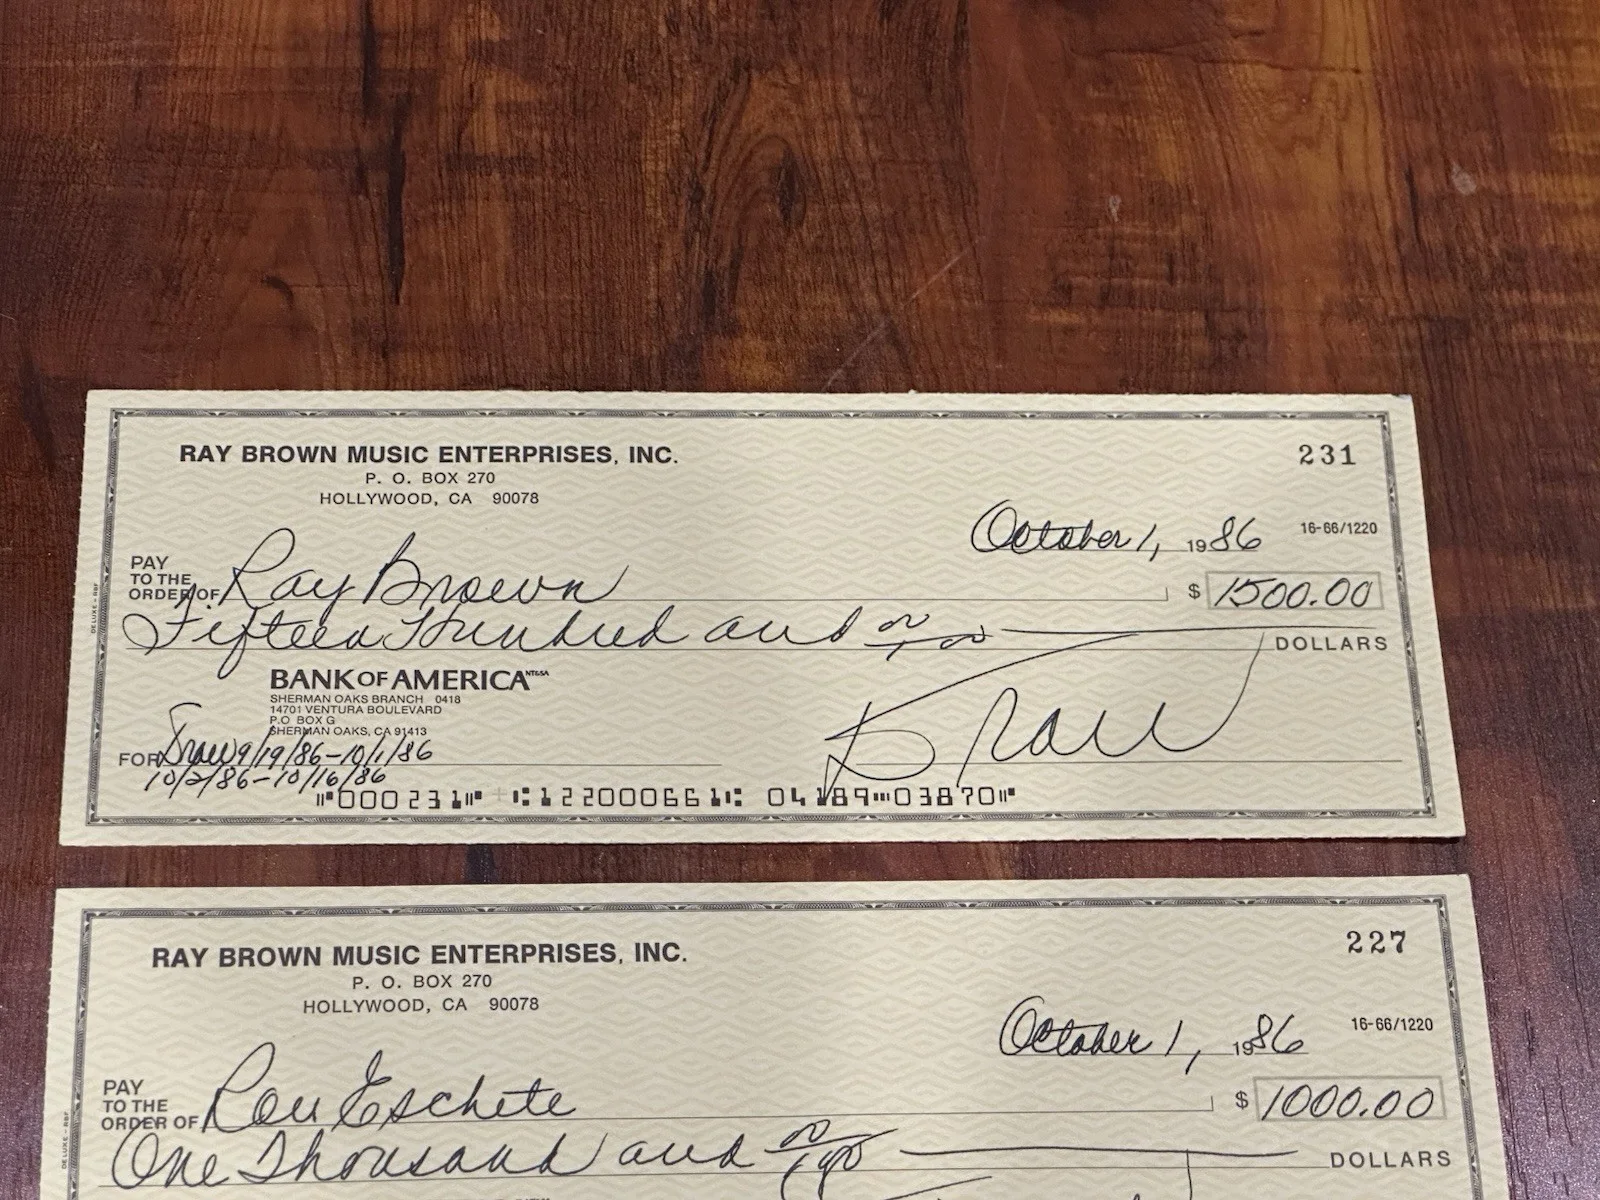 RAY BROWN MUSIC ENTERPRISES, INC.
P. O. BOX 270
HOLLYWOOD, CA 90078
231
October 1, 1986
16-66/1220
PAY TO THE ORDER OF Ray Brown $ 1500.00
Fifteen Hundred and no/100 DOLLARS
BANK OF AMERICA NT&SA
SHERMAN OAKS BRANCH 0418
14701 VENTURA BOULEVARD
P.O BOX G
SHERMAN OAKS, CA 91413
FOR Draw 9/19/86-10/1/86
10/2/86-10/16/86
R Brown
⑈000231⑈ ⑆122000661⑆ 04189⑉03870⑈
DELUXE - RBF
RAY BROWN MUSIC ENTERPRISES, INC.
P. O. BOX 270
HOLLYWOOD, CA 90078
227
October 1, 1986
16-66/1220
PAY TO THE ORDER OF Ron Eschete $ 1000.00
One Thousand and no/100 DOLLARS
DELUXE - RBF